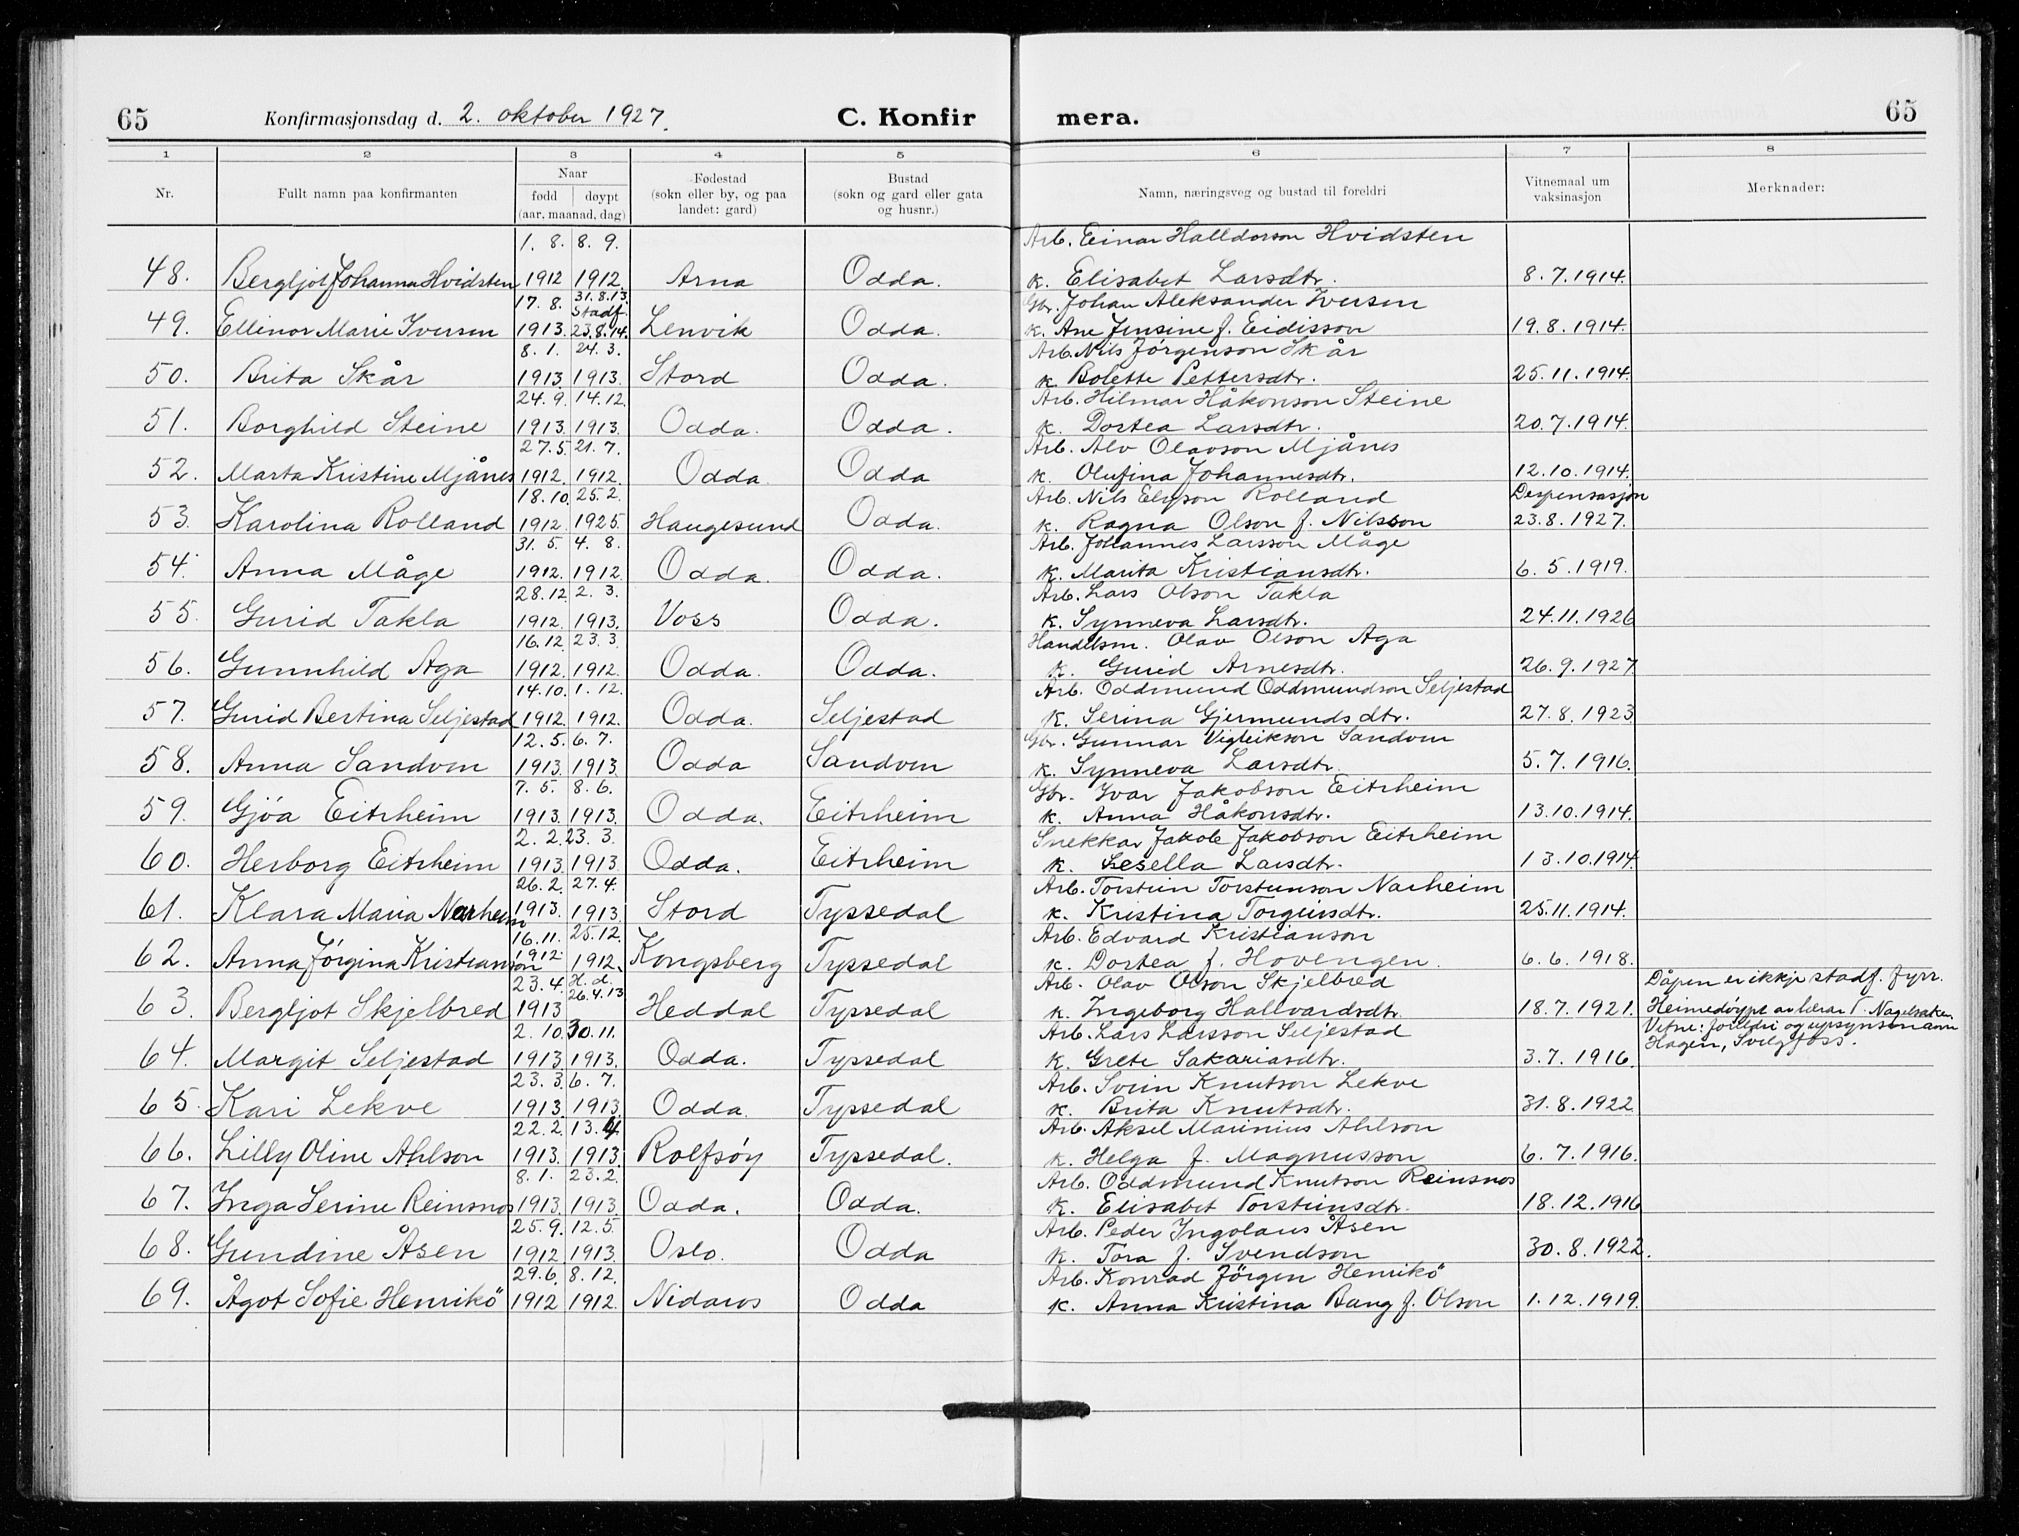 65 Konfirmasjonsdag d. 2. oktober 1927. C. Konfir mera. 65
1 2 3 4 5 6 7 8
Nr. Fullt namn paa konfirmanten Naar fødd døypt (aar, maanad, dag) Fødestad (sokn eller by, og paa landet: gard) Bustad (sokn og gard eller gata og husnr.) Namn, næringsveg og bustad til foreldri Vitnemaal um vaksinasjon Merknader:
1. 8. 8. 9. Arb. Einar Halldorson Hvidsten
48. Bergljot Johanna Hvidsten 1912 1912. Arna Odda. k. Elisabet Larsdtr. 8.7.1914.
17. 8. 31.8.13. Stadf. Gbr. Johan Aleksander Iversen
49. Ellinor Marie Iversen 1913. 23.8.14. Lenvik Odda. k. Ane Jensine f. Eidisson 19.8.1914.
8. 1. 24. 3. Arb. Nils Jørgenson Skår
50. Brita Skår 1913. 1913. Stord Odda. k. Bolette Pettersdtr. 25.11.1914.
24. 9. 14.12. Arb. Hilmar Håkonson Steine
51. Borghild Steine 1913. 1913. Odda. Odda. k. Dortea Larsdtr. 20.7.1914.
27. 5. 21. 7. Arb. Alv Olavson Mjånes
52. Marta Kristine Mjånes 1912. 1912. Odda. Odda k. Olufina Johannesdtr. 12.10.1914.
18.10. 25.2. Arb. Nils Elyson Rolland Despensasjon
53. Karolina Rolland 1912. 1925. Haugesund Odda. k. Ragna Olson f. Nilsson 23.8.1927.
31. 5. 4. 8. Arb. Johannes Larsson Måge
54. Anna Måge 1912. 1912. Odda. Odda. k. Marita Kristiansdtr. 6.5.1919.
28.12. 2. 3. Arb. Lars Olson Takla
55. Gurid Takla 1912. 1913. Voss Odda. k. Synneva Larsdtr. 24.11.1926
16.12. 23. 3. Handelsm. Olav Olson Aga
56. Gunnhild Aga 1912. 1912. Odda. Odda. k. Gurid Arnesdtr. 26.9.1927.
14.10. 1. 12. Arb. Oddmund Oddmundson Seljestad
57. Gurid Bertina Seljestad 1912. 1912. Odda. Seljestad k. Serina Gjermundsdtr. 27.8.1923
12. 5. 6. 7. Gbr. Gunnar Vigleikson Sandven
58. Anna Sandven 1913. 1913. Odda Sandven k. Synneva Larsdtr. 5.7.1916.
7. 5. 8. 6. Gbr. Ivar Jakobson Eitrheim
59. Gjóa Eitrheim 1913. 1913. Odda. Eitrheim k. Anna Håkonsdtr. 13.10.1914.
2. 2. 23. 3. Snekkar Jakob Jakobson Eitrheim
60. Herborg Eitrheim 1913. 1913. Odda. Eitrheim k. Sesella Larsdtr. 13.10.1914.
26. 2. 27. 4. Arb. Torstein Torsteinson Narheim
61. Klara Maria Narheim 1913. 1913. Stord Tyssedal k. Kristina Torgeirsdtr. 25.11.1914.
16.11. 25.12. Arb. Edvard Kristianson
62. Anna Jørgina Kristianson 1912. 1912. Kongsberg Tyssedal k. Dortea f. Hovengen. 6.6.1918.
23. 4. H. d. 26.4.13. Arb. Olav Olson Skjelbred Dåpen er ikkje stadf. fyrr.
63. Bergljot Skjelbred 1913 Heddal Tyssedal k. Ingeborg Hallvardsdtr. 18.7.1921. Heimedøypt av lærar T. Nagelsaker.
2. 10. 30. 11. Arb. Lars Larsson Seljestad Vitne: foreldri og upsynsmann
64. Margit Seljestad 1913. 1913. Odda. Tyssedal k. Grete Sakariasdtr. 3.7.1916. Hagen, Svelgfoss.
23. 3. 6. 7. Arb. Svein Knutson Lekve
65. Kari Lekve 1913. 1913. Odda. Tyssedal k. Brita Knutsdtr. 31.8.1922
22. 2. 13. 4 Arb. Aksel Marinius Ahlson
66. Lilly Oline Ahlson 1913. 1913. Rolfsøy Tyssedal. k. Helga f. Magnusson 6.7.1916.
8. 1. 23. 2. Arb. Oddmund Knutson Reinsnos
67. Inga Serine Reinsnos 1913. 1913. Odda. Odda. k. Elisabet Torsteinsdtr. 18.12.1916
25. 9. 12. 5. Arb. Peder Ingolaus Åsen
68. Gundine Åsen 1912. 1913. Oslo. Odda k. Tora f. Svendson 30.8.1922.
29. 6. 8. 12. Arb. Konrad Jörgen Henrikö
69. Ågot Sofie Henrikö 1912 1912. Nidaros Odda k. Anna Kristina Bang f. Olson 1.12.1919.